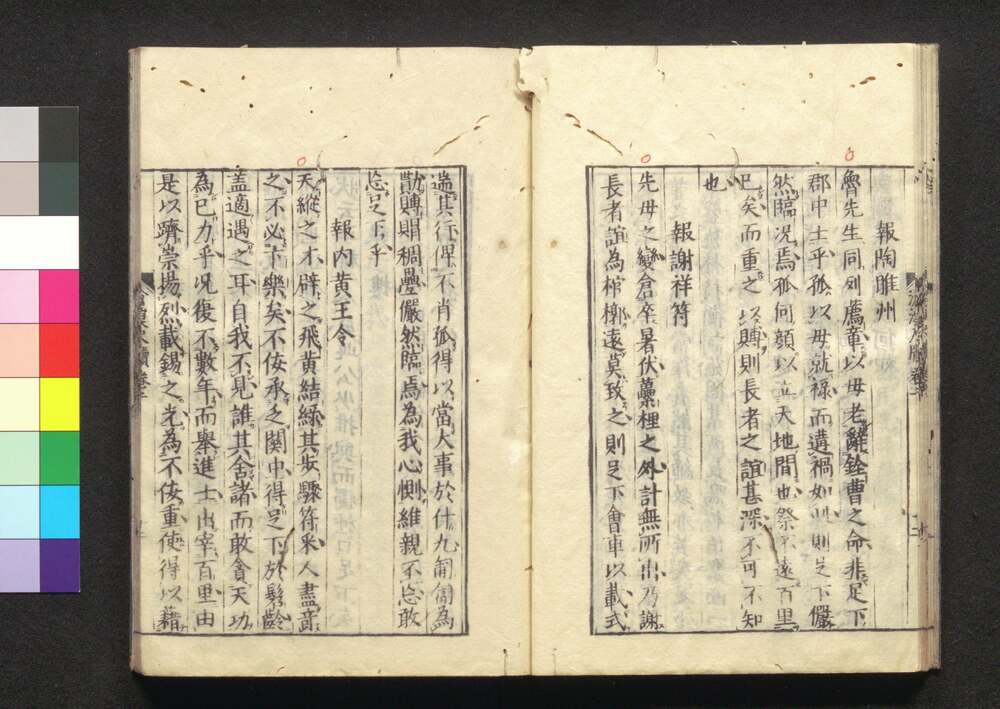 報陶睢州
魯先生同列薦章以母老辭銓曹之命非足下
郡中士乎孤以母就祿而遘禍如此則足下儼
然臨况焉孤何顔以立天地間也祭不遠百里
巳矣而重之以賻則長者之誼甚深不可不知
也
報謝祥符
先母之變倉卒暑伏蘽梩之外計無所出乃謝
長者誼為棺槨遠莫致之則足下會車以載式
遄其行俾不肖孤得以當大事於什九匍匐為
勩賻賵稠疊儼然臨焉為我心惻維親不忘敢
忘足下乎
報内黄王令
天縱之才辟之飛黄結綠其步驟符采人盡
之不必下樂矣不佞承乏關中得足下於髫齡
盖適遇之耳自我不見誰其舍諸而敢貪天功
為巳力乎况復不數年而舉進士出宰百里由
是以躋崇揚烈載錫之光為不佞重使得以藉